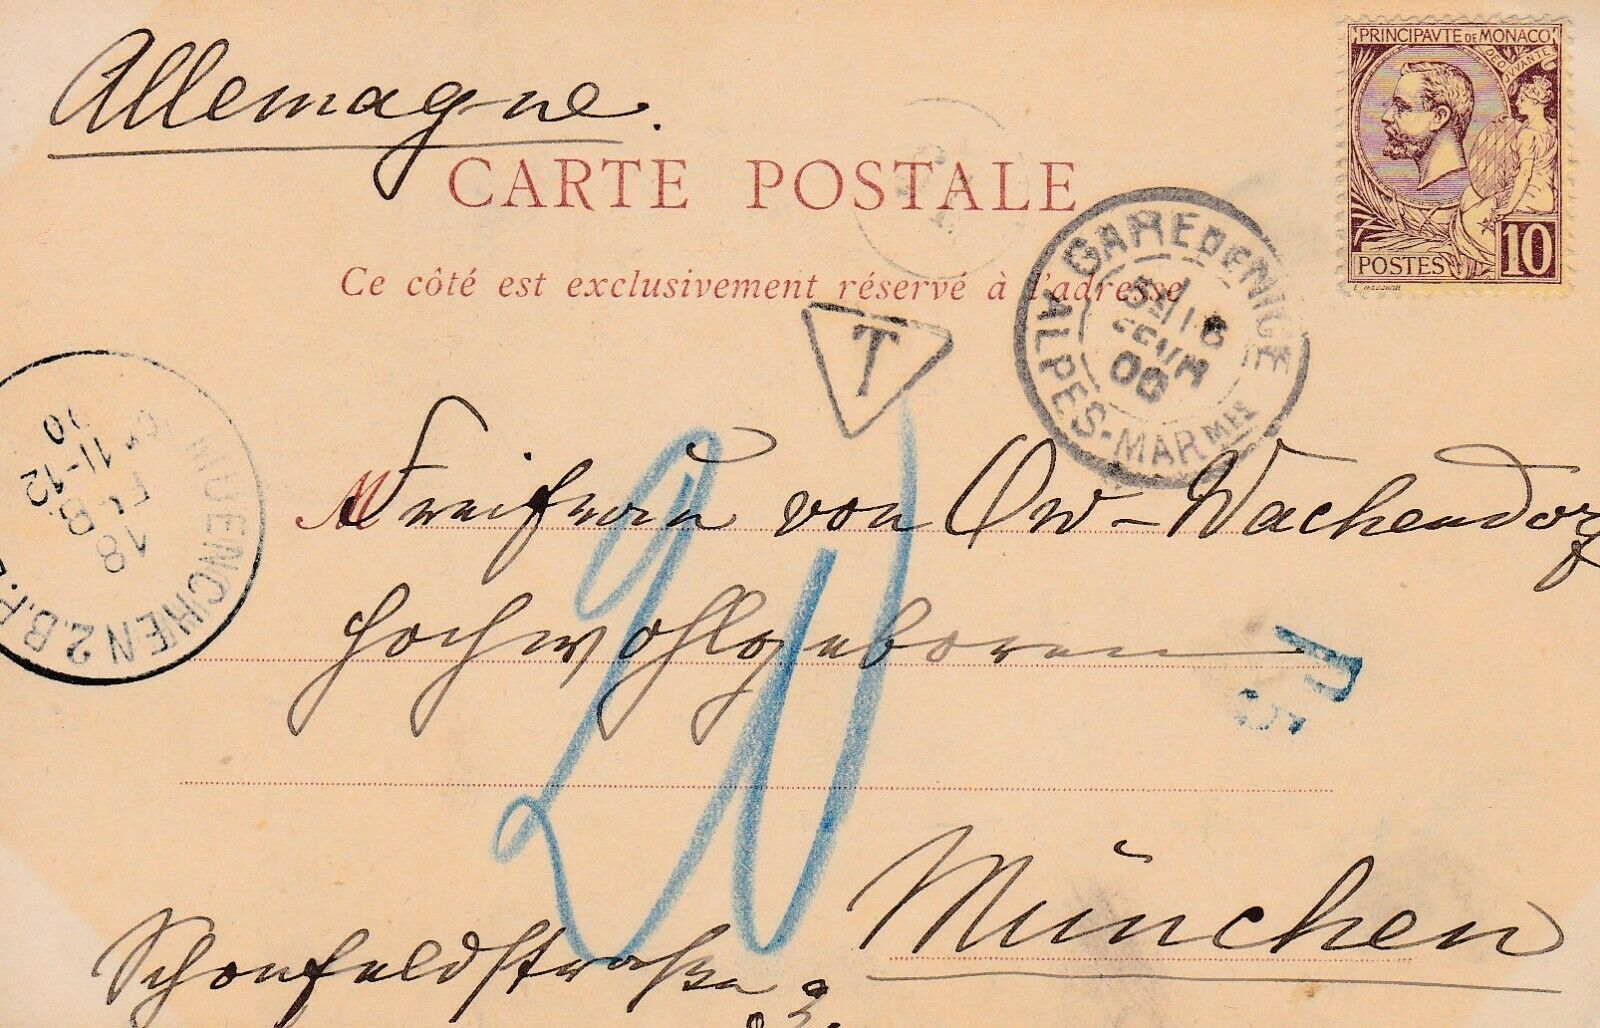 Allemagne.
PRINCIPAVTE DE MONACO
DEO JVVANTE
POSTES 10
E. MOUCHON
CARTE POSTALE
Ce côté est exclusivement réservé à l'adresse
GARE DE NICE
16
FEVR
00
ALPES-MARMES
T
MUENCHEN 2. B.P.
18
FE
B.12
11-12
00
20
M
Freifrau von Ow-Wachendorf
Hochwohlgeboren
München
Schönfeldstraße